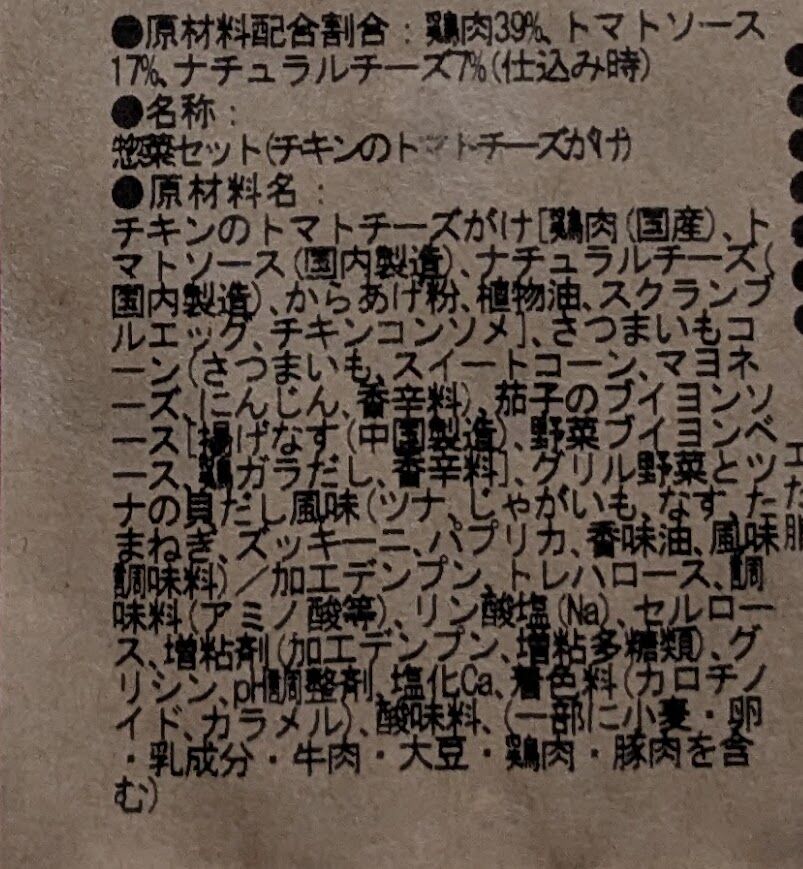 ●原材料配合割合：鶏肉39%、トマトソース
17%、ナチュラルチーズ7%(仕込み時)
●名称：
惣菜セット(チキンのトマトチーズがけ)
●原材料名：
チキンのトマトチーズがけ[鶏肉(国産)、ト
マトソース(国内製造)、ナチュラルチーズ(
国内製造)、からあげ粉、植物油、スクランブ
ルエッグ、チキンコンソメ]、さつまいもコ
ーン(さつまいも、スイートコーン、マヨネ
ーズ、にんじん、香辛料)、茄子のブイヨンソ
ース[揚げなす(中国製造)、野菜ブイヨンベ
ース、鶏ガラだし、香辛料]、グリル野菜とツ
ナの貝だし風味(ツナ、じゃがいも、なす、た
まねぎ、ズッキーニ、パプリカ、香味油、風味
調味料)／加工デンプン、トレハロース、調
味料(アミノ酸等)、リン酸塩(Na)、セルロー
ス、増粘剤(加工デンプン、増粘多糖類)、グ
リシン、pH調整剤、塩化Ca、着色料(カロチノ
イド、カラメル)、酸味料、(一部に小麦・卵
・乳成分・牛肉・大豆・鶏肉・豚肉を含
む)